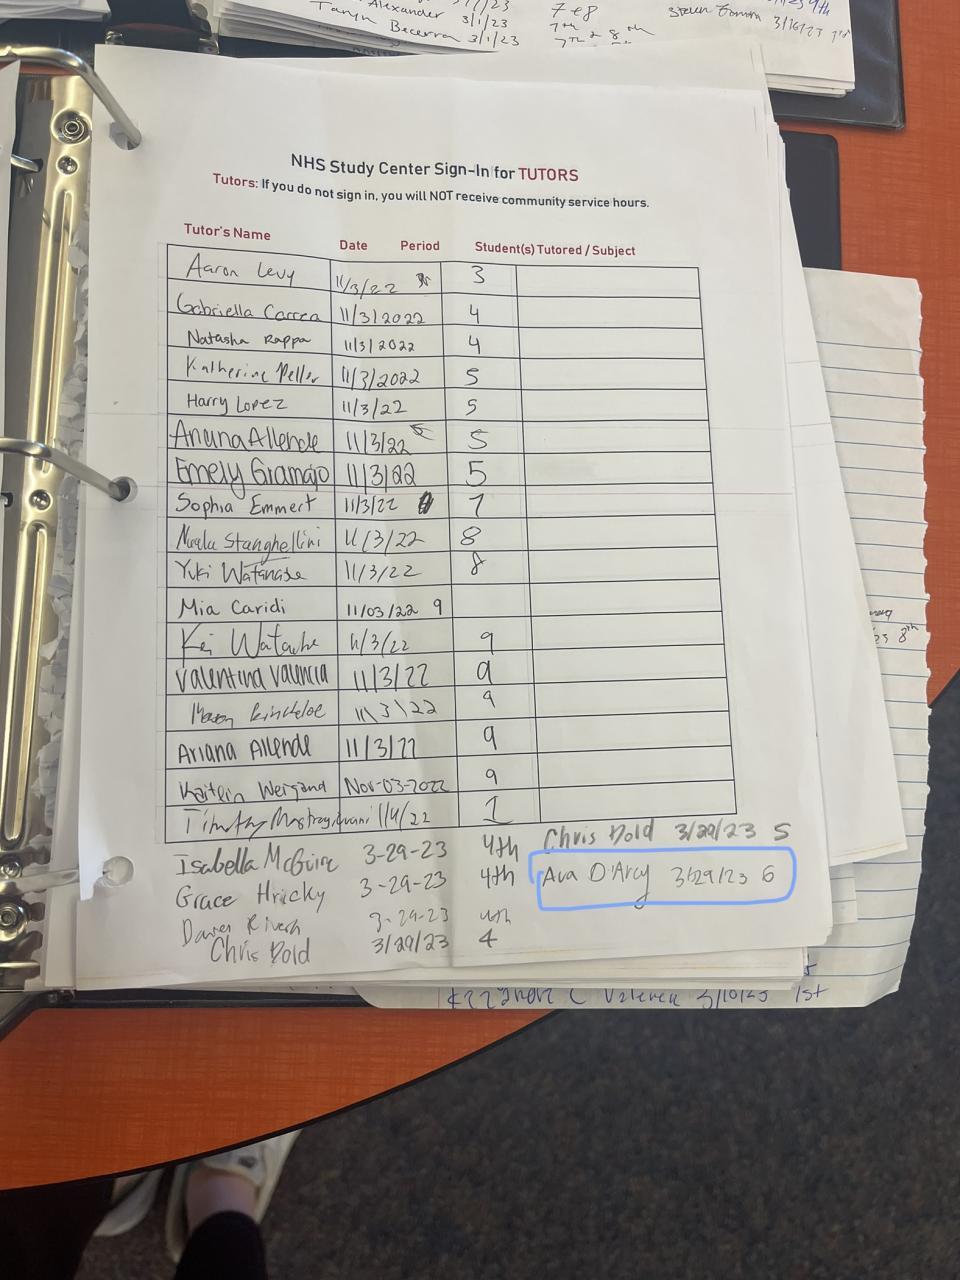 Alexander 3/1/23 7+8
Tanya
Becerra 3/1/23 7th & 8th
3/16/23
NHS Study Center Sign-In for TUTORS
Tutors: If you do not sign in, you will NOT receive community service hours.
Tutor's Name Date Period Student(s) Tutored / Subject
Aaron Levy 11/3/22 3
Gabriella Correa 11/3/2022 4
Natasha Rappa 11/3/2022 4
Katherine Peller 11/3/2022 5
Harry Lopez 11/3/22 5
Ariana Allende 11/3/22 5
Emely Gramajo 11/3/22 5
Sophia Emmert 11/3/22 7
Stanghellini 11/3/22 8
Yuki Watanabe 11/3/22 8
Mia Caridi 11/03/22 9
Kei Watanabe 11/3/22 9
Valentina Valencia 11/3/22 9
11/3/22 9
Ariana Allende 11/3/22 9
Kaitlin Weigand Nov-03-2022 9
Timothy 11/4/22 1
Isabella McGuire 3-29-23 4th
Grace Hricky 3-29-23 4th
3-29-23 4th
Chris Dold 3/29/23 4
Chris Dold 3/29/23 5
Ava D'Arcy 3/29/23 6
8th
3/10/23 1st